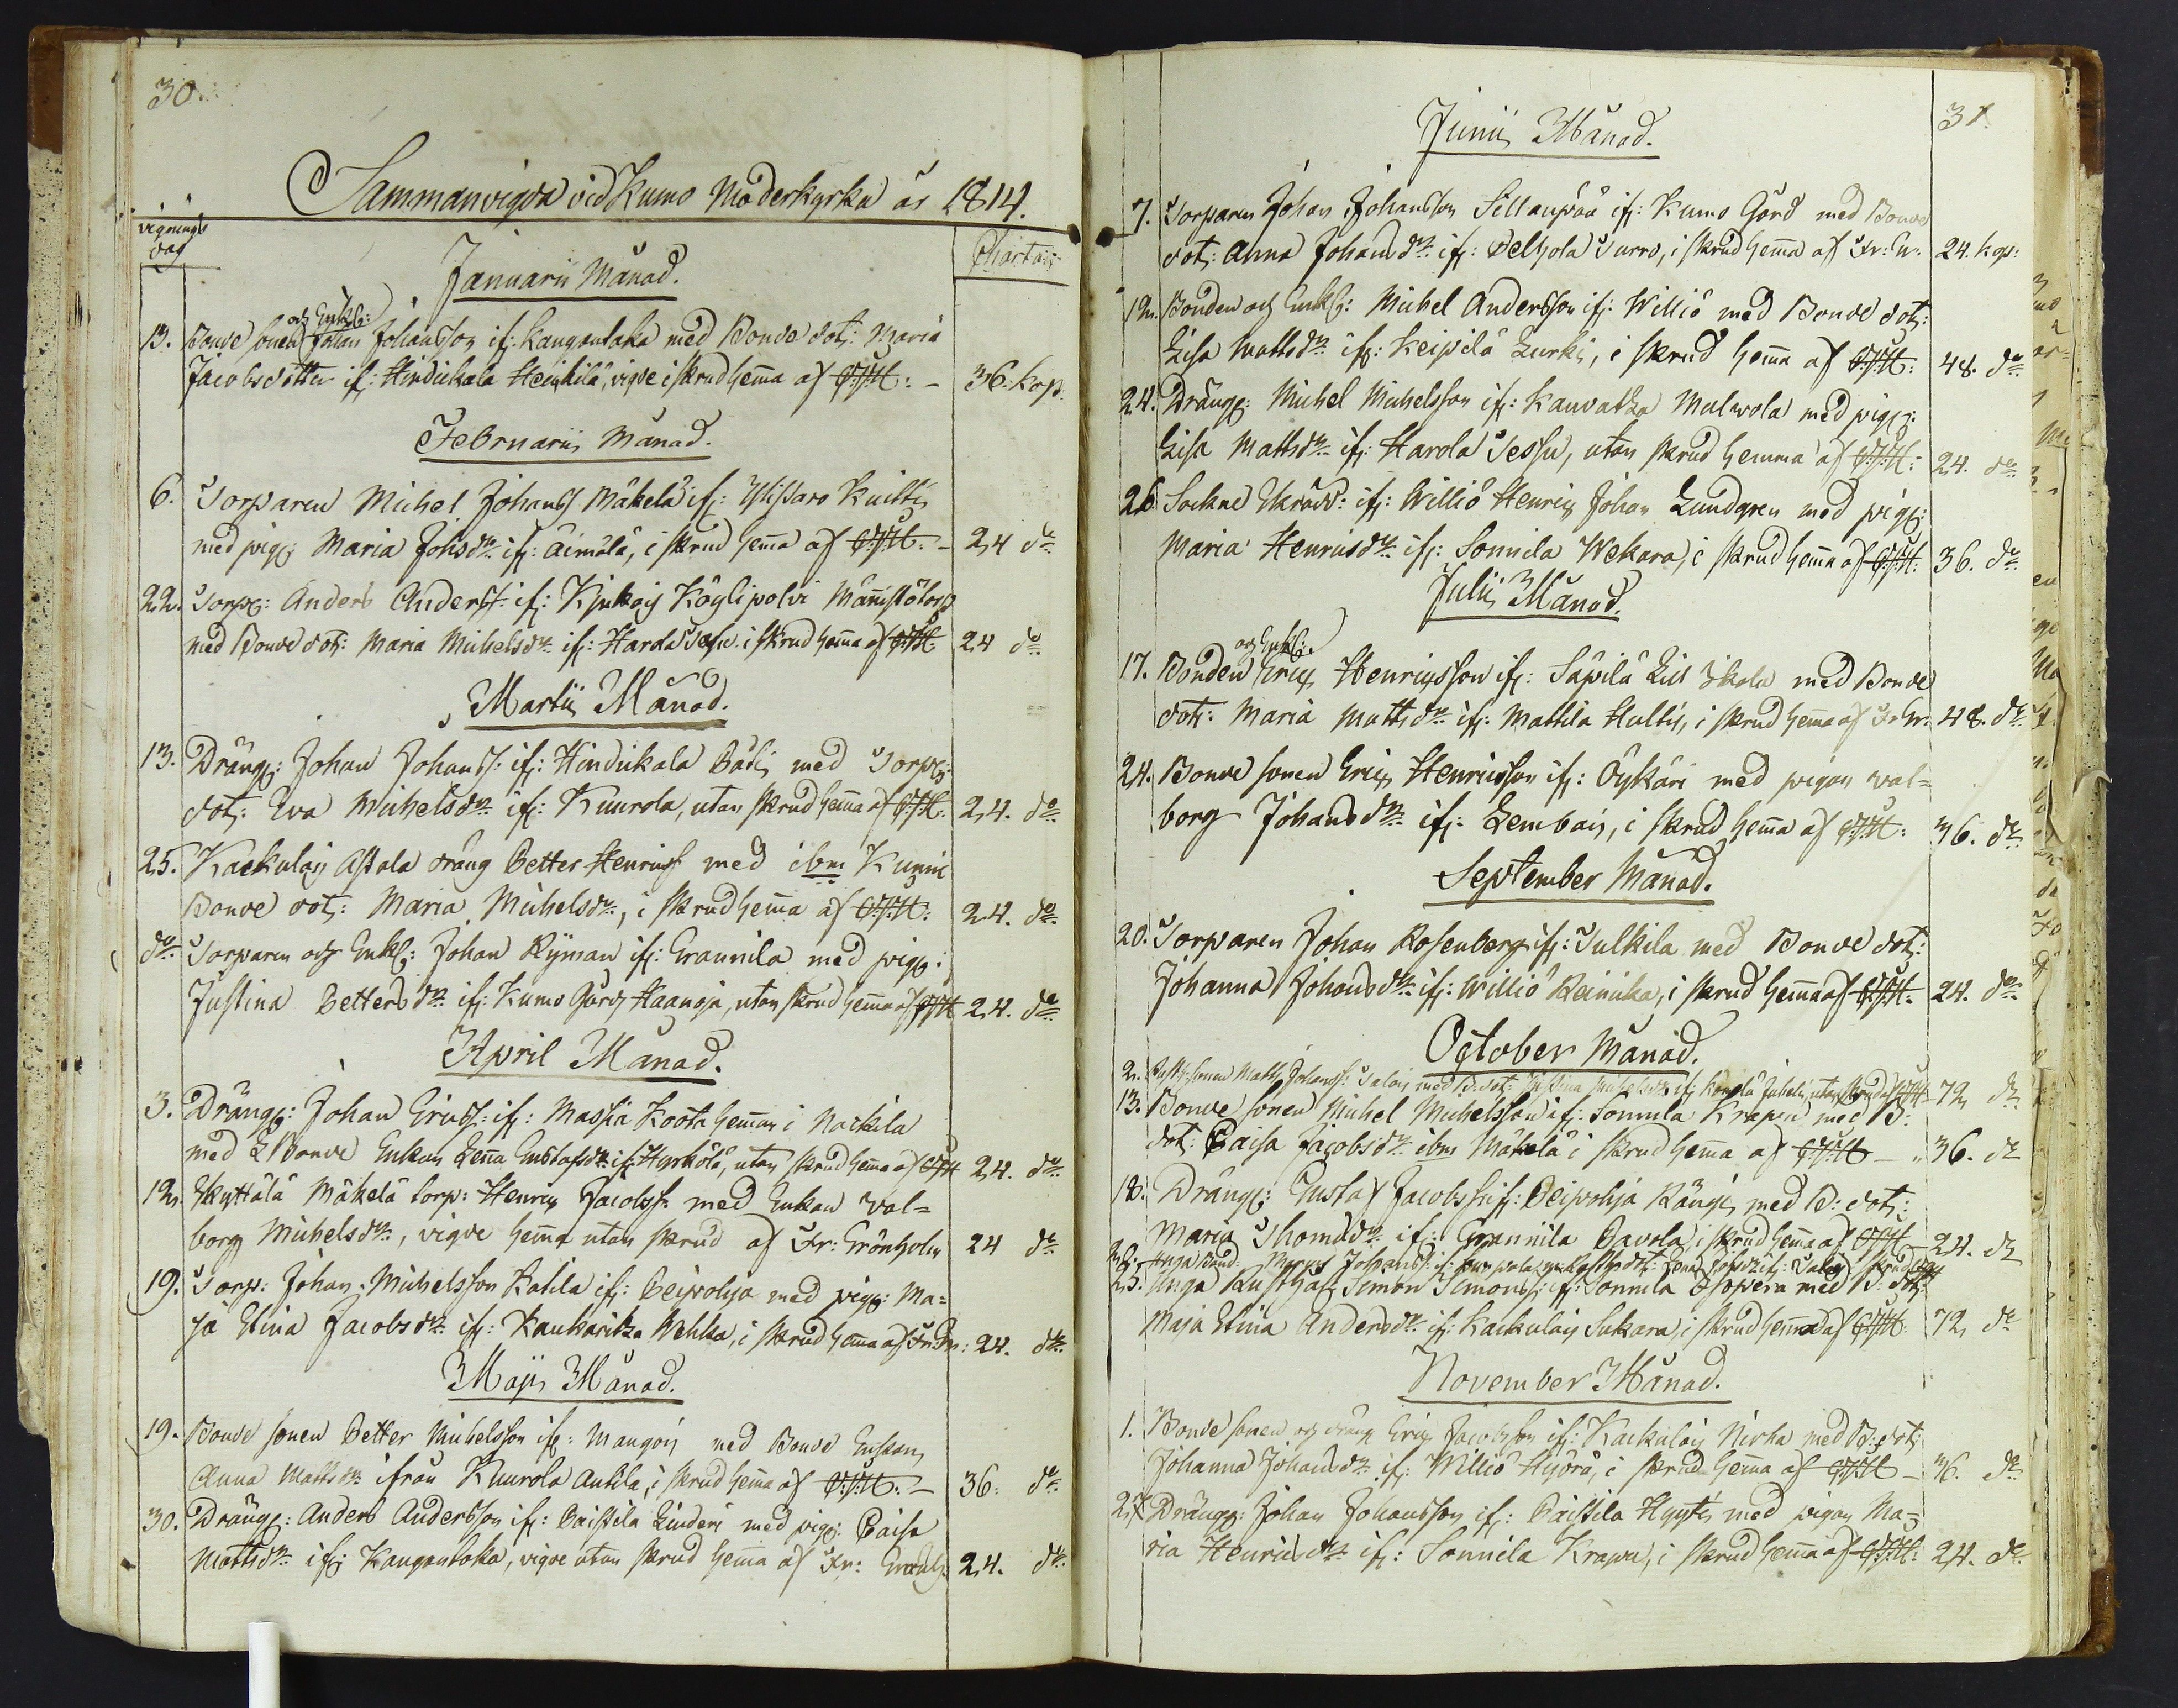 30.
Sammanvigda vid Kumo Moderkyrka år 1814.
vignings
dag
Charta:
Januarii Månad.
och Enkl:
13. Bonde sonen Johan Johansson if: Kangantaka med Bonde dotr: Maria
Jacobsdotter if: Hindickala Heickilä, vigde i skrud hema af 36. Kop.
Februarii Månad.
6. Torparen Michel Johanss Mäkelä if: Ylistaro Knittis
med pig: Maria Johsdr if: Äimälä, i skrud hema af 24 do
22. Torp: Anders Anderss if: Kjukois Köylipolvi Männistötorp
med Bonde dotr: Maria Michelsdr if: Harola Sessu i skrud hema af 24 do
Martii Månad.
13. Dräng: Johan Johanss: if: Hindickala Päti med Torp:
dotr: Eva Michelsdr if: Kuurola, utan skrud hema af 24. do
25. Kackulais Astala dräng Petter Henricss med ibm Kunni
Bonde dotr: Maria Michelsdr, i skrud hema af 24. do
do Torparen och Enkl: Johan Ryman if: Grannila med pig:
Justina Pettersdr if: Kumo Gård Haanoja, utan skrud hema af 24. do
April Månad.
3. Dräng: Johan Ericss: if: Massia Koota hemman i Nackila
med Bonde Enkan Lena Gustafsdr if: Hyrkölä, utan skrud hema af 24. do
12. Skyttälä Mäkelä torp: Henric Jacobss. med Enkan Val=
borg Michelsdr, vigde hemma utan skrud af Kr: Grönholm 24 do
19. Torp: Johan Michelsson Katila if: Peipohja med pig: Ma=
ja Stina Jacobsdr if: Kaukaritza Wehka, i skrud hema af 24. do
Maji Månad.
19. Bonde sonen Petter Michelsson if: Mangois med Bonde Enkan
Anna Mattsdr ifrån Kuurola Anttila, i skrud hema af 36. do
30. Dräng: Anders Andersson if: Paistila Linderi med pig: Caisa
Mattsdr if: Kangantaka, vigde utan skrud hema af Kr: 24. do
31.
Junii Månad.
7. Torparen Johan Johansson Sillanpää if: Kumo Gård med Bonde
dotr: Anna Johansdr if: Peltzola Surro, i skrud hema af 24. Kop:
12. Bonden och Enkl: Michel Andersson if: Williö med Bonde dotr:
Lisa Mattsdr if: Keipilä Lurki, i skrud hema af 48. do
24. Dräng: Michel Michelsson if: Kauvatza Matvola med pig:
Lisa Mattsdr if: Harola Sessu, utan skrud hemma af 24. do
26. Sockne if: Williö Henric Johan Lundgren med pig:
Maria Henricsdr if: Sonnila Wekara, i skrud hema af 36. do
Julii Månad.
och Enkl:
17. Bonden Eric Henricsson if: Säpilä Lill Ikola med Bonde
dotr: Maria Mattsdr if: Mattila Hultis, i skrud hema af 48. do
24. Bonde sonen Eric Henricsson if: Öykäri med pigan Val=
borg Johansdr if: Lembois, i skrud hema af 36. do
September Månad.
20. Torparen Johan Rosenberg if: Tulkila med Bonde dotr:
Johanna Johansdr if: Williö Reinika, i skrud hema af 24. do
October Månad.
2. sonen Matts Johanss: Talois med B: dotr: Justina if: utan skrud 72 do
13. Bonde sonen Michel Michelsson if: Sonnila Krapu med B:
dotr: Caisa Jacobsdr ibm Mäkelä i skrud hema af 36. do
18. Dräng: Gustaf Jacobss if: Peipohja Rängi, med B: dotr:
Maria Thomasdr if: Grannila Pavola, i skrud hema af 24. do
Unga Bond: Johanss: if: skrud
25. Unga Rusth: Simon Simonss: if: Sonnila med B: dotr:
Maja Stina Andersdr if: Kackulais Sukara, i skrud hema af 72 do
November Månad.
1. Bonde sonen och dräng Eric Jacobsson if: Kackulais Nirka med B: dotr:
Johanna Johansdr if: Williö Hyörä, i skrud hema af 36. do
Dräng: Johan Johansson if: Paistila Hyytis med pigan Ma=
ria Henricsdr if: Sonnila Krapu, i skrud hema af 24. do